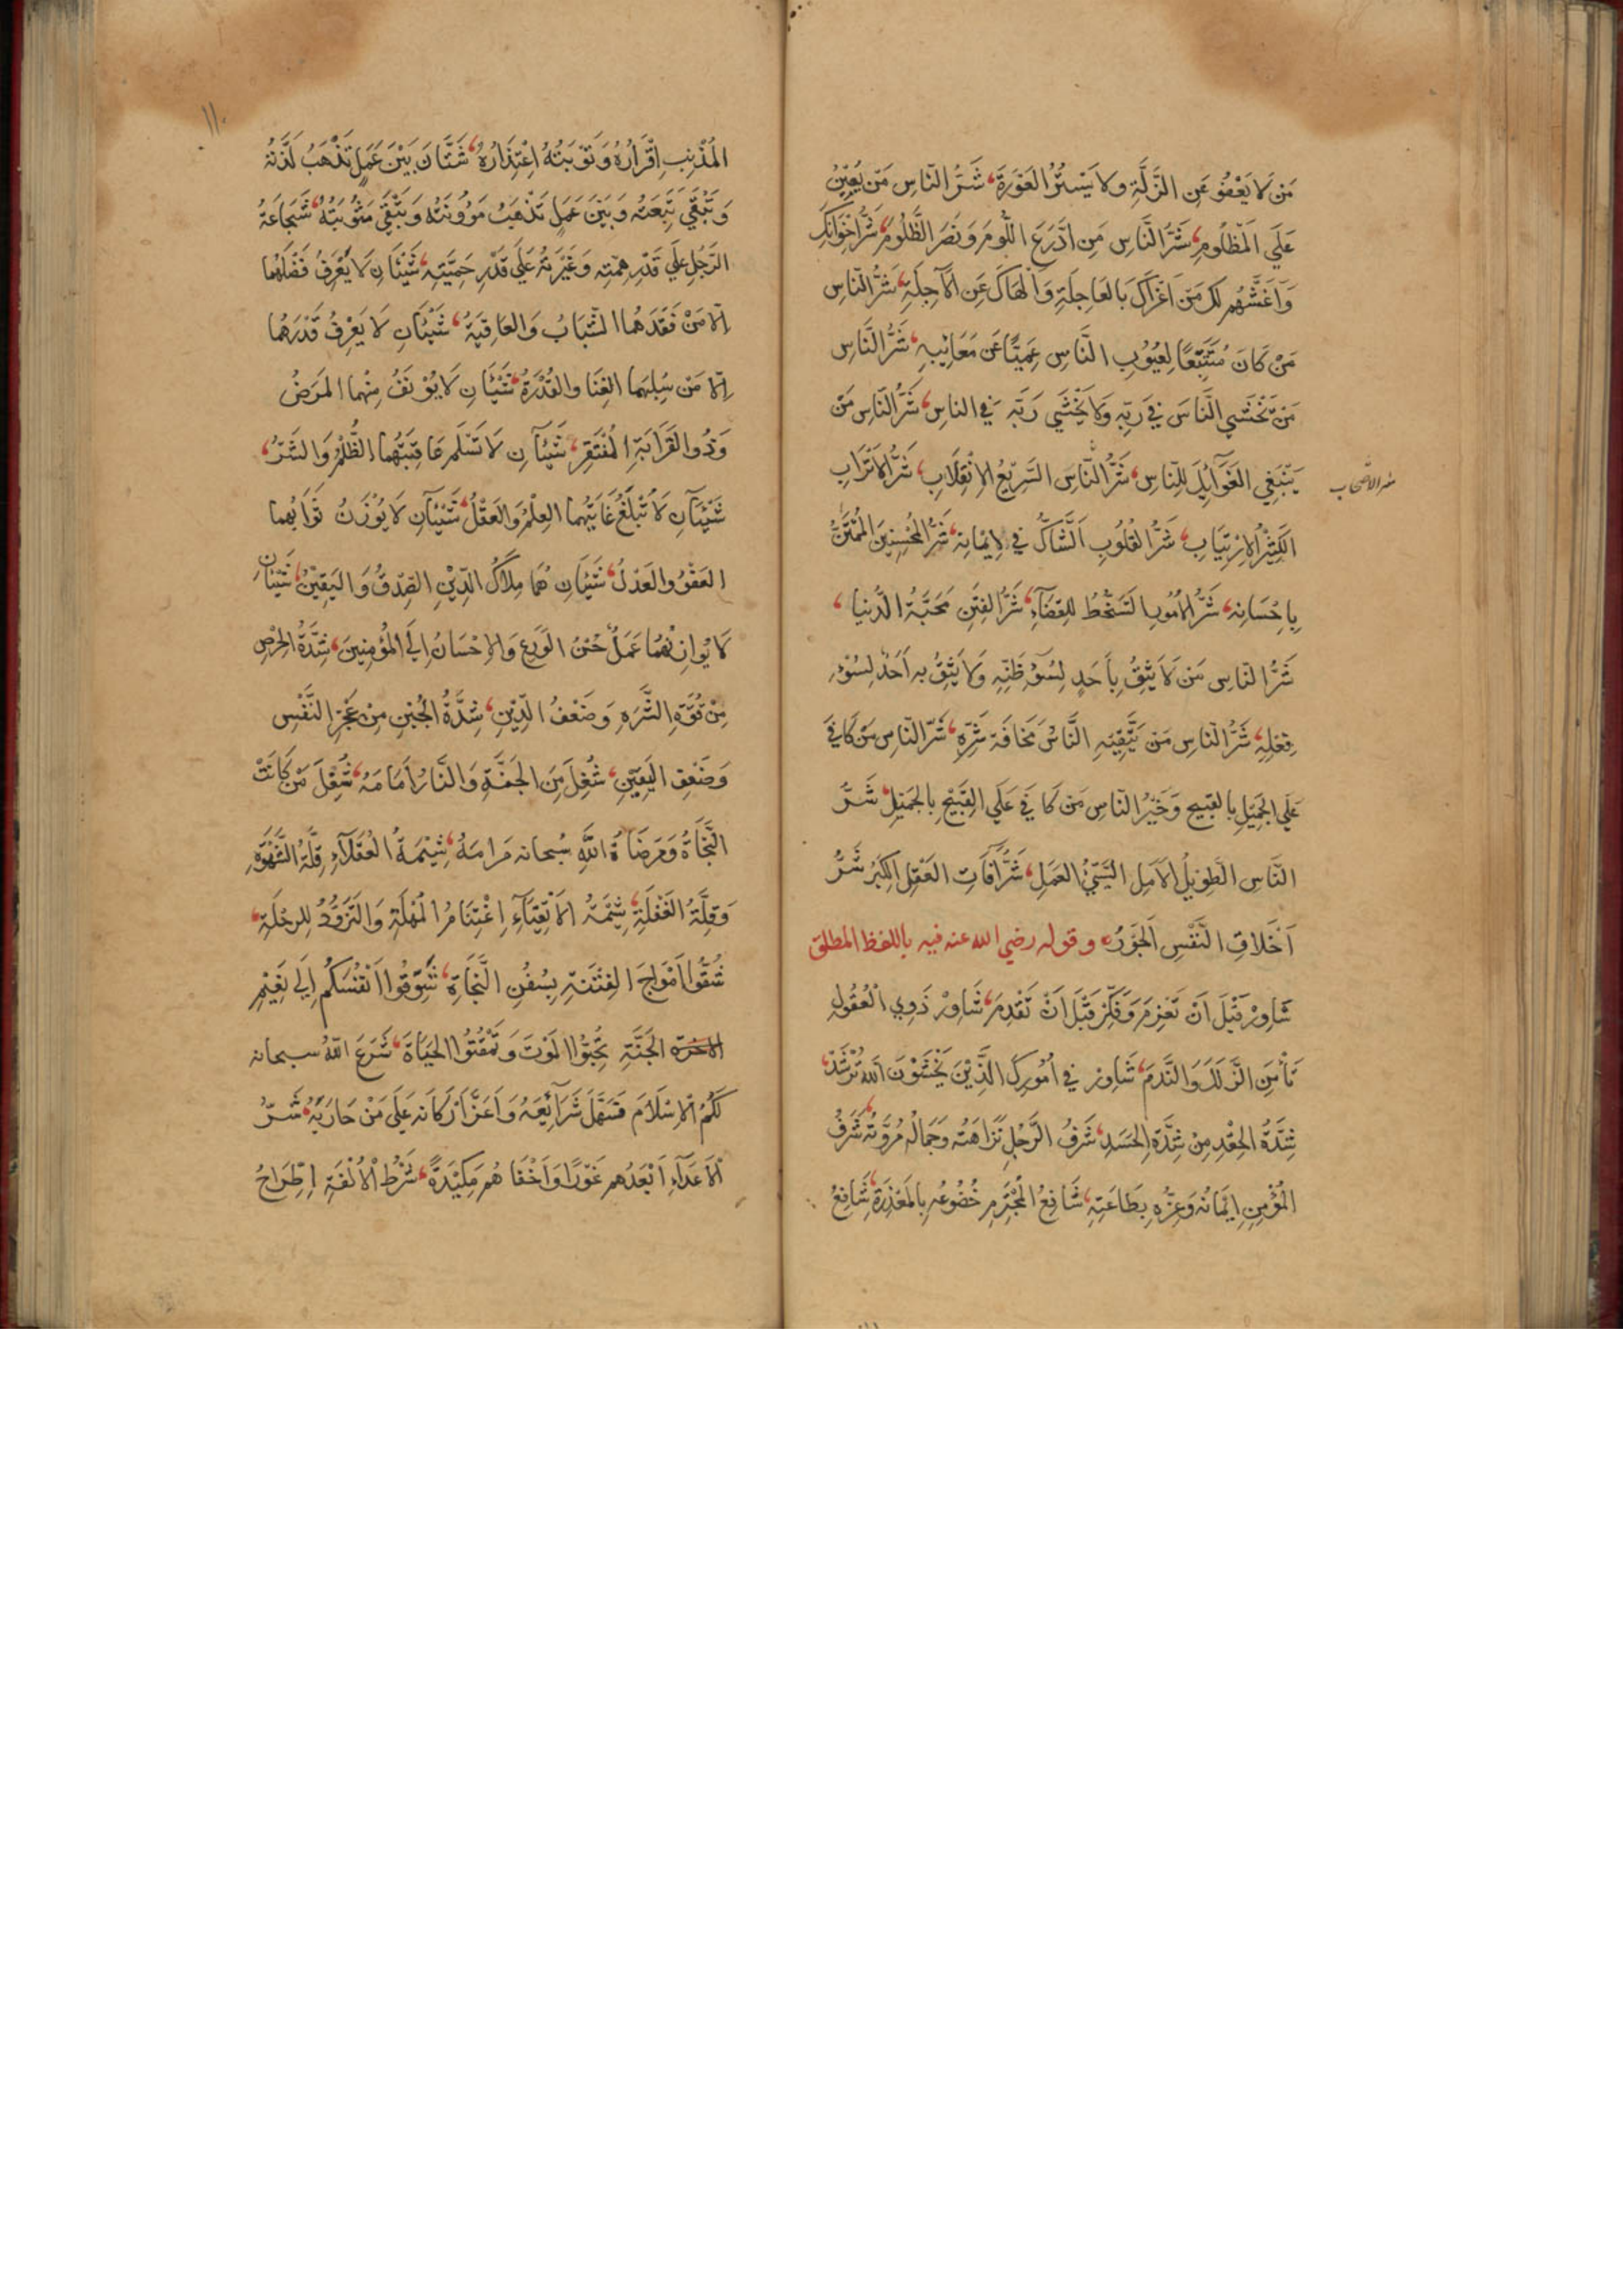 مَنْ لَا يَعْفُو عَنِ الزَّلَّةِ ولا يَسْتُرُ العَوْرَةَ، شَرُّ النّاسِ مَن يُعِيْنُ
عَلَي المَظْلُومِ، شَرُّ النَّاسِ مَنِ ادَّرَعَ اللُّومَ وَنَصَرَ الظَّلُومَ، شَرُّ اِخْوَانِكَ
وَاَغَشُّهُم لَكَ مَنْ اَغْرَاكَ بِالعَاجِلَةِ وَاَلْهَاكَ عَنِ الآجِلَةِ، شَرُّ النّاسِ
مَنْ كَانَ مُتَتَبِّعًا لِعُيُوبِ النَّاسِ عَمِيًّا عَن مَعَايِبِهِ، شَرُّ النَّاسِ
مَنْ يَخْشَي النَّاسَ فِي رَبِّهِ وَلَا يَخْشَي رَبَّه فِي الناسِ، شَرُّ النّاسِ مَنْ
يَبْتَغِي الغَوَآئِلَ لِلنّاسِ، شَرُّ النَّاسَ السَّرِيْعُ الاِنْقِلَابِ، شَرُّ الاَتْرَابِ
شر الاصحاب
الكَثِيْرُ الاِرْتِيَابِ، شَرُّ القُلُوبِ الشَّاكُّ فِي اِيْمَانِهِ، شَرُّ المُحْسِنِينَ المُمْتَنُّ
بِاِحْسَانِهِ، شَرُّ الاُمُورِ التَسَخُّطُ لِلقَضَآءِ، شَرُّ الفِتَنِ مَحَبَّةُ الدُّنيا،
شَرُّ النّاسِ مَنْ لَا يَثِقُ بِاَحَدٍ لِسُوْءِ ظَنِّهِ وَلَا يَثِقُ بِهِ اَحَدٌ لِسُوْءِ
فِعْلِهِ، شَرُّ النّاسِ مَن يَتَّقِيْهِ النَّاسُ مَخَافَةَ شَرِّهِ، شَرُّ النّاسِ مَنْ كَافَي
عَلَي الجَمِيْلِ بِالقَبِيحِ وَخَيْرُ النّاسِ مَن كَافَي عَلَي القَبِيْحِ بِالجَمِيْلِ، شَرُّ
النَّاسِ الطَوِيْلُ الاَمَلِ السَّيِّئُ العَمَلِ، شَرُّ آفَاتِ العَقْلِ الكِبْرُ، شَرُّ
اَخْلَاقِ النَّفْسِ الجَوْرُ، وقوله رضي الله عنه فيه باللفظ المطلق
شَاوِرْ قَبْلَ اَنْ تَعْزِمَ وَفَكِّرْ قَبْلَ اَنْ تُقْدِمَ، شَاوِرْ ذَوِي الْعُقُولِ
تَأْمَنِ الزَّلَلَ وَالنَّدَمَ، شَاوِر فِي اُمُورِكَ الَّذِيْنَ يَخْشَوْنَ اللّهَ تُرْشَدْ،
شِدَّةُ الحِقْدِ مِنْ شِدَّةِ الحَسَدِ، شَرَفُ الرَّجُلِ نَزَاهَتُه وَجَمَالُه مُرُوَّتُه، شَرَفُ
المُؤْمِنِ اِيْمَانُه وَعِزُّه بِطَاعَتِهِ، شَافِعُ المُجْرِمِ خُضُوعُه بِالمَعْذِرَةِ، شَافِعُ
١١٠
المُذْنِبِ اِقْرَارُهُ وَتَوْبَتُهُ اِعْتِذَارُهُ، شَتَّانَ بَيْنَ عَمَلٍ تَذْهَبُ لَذَّتُهُ
وَتَبْقَي تَبِعَتُه وَبَيْنَ عَمَلٍ تَذْهَبُ مَؤُونَتُه وَتَبْقَي مَثُوبَتُهُ، شَجَاعَةُ
الرَّجُلِ عَلَي قَدْرِ هِمَّتِهِ وَغَيْرَتُهُ عَلَي قَدْرِ حَمِيَّتِهِ، شَيْئَانِ لَا يُعْرَفُ فَضْلُهُمَا
اِلّا مَنْ فَقَدَهُمَا الشَّبَابُ وَالعَافِيَةُ، شَيْئَانِ لَا يَعْرِفُ قَدْرَهُمَا
اِلّا مَنْ سُلِبَهُمَا الغِنَا والقُدْرَةُ، شَيْئَانِ لَا يُوْنَفُ مِنْهُما المَرَضُ
وَذُو القَرَابَةِ المُفْتَقِرُ، شَيْئَآنِ لَا تَسْلَمُ عَاقِبَتُهُما الظُّلْمُ وَالشَّرُّ،
شَيْئَآنِ لَا تُبْلَغُ غَايَتُهُما العِلْمُ وَالعَقْلُ، شَيْئَآنِ لَا يُوْزَنُ ثَوَابُهما
العَفْوُ والعَدْلُ، شَيْئَانِ هُمَا مِلَاكُ الدِّيْنِ الصِّدْقُ وَاليَقِيْنُ، شَيْئَانِ
لَا يُوازِنُهُمَا عَمَلٌ حُسْنُ الوَرَعِ وَالاِحْسَانُ اِلَي المُؤْمِنِينَ، شِدَّةُ الحِرْصِ
مِنْ قُوَّةِ الشَّرَهِ وَضَعْفُ الدِّيْنِ، شِدَّةُ الجُبْنِ مِنْ عَجْزِ النَّفْسِ
وَضَعْفِ اليَقِيْنِ، شُغِلَ مَنِ الجَنَّةِ وَالنَّارُ اَمَامَهُ، شُغِلَ مَنْ كَانَتْ
النَّجَاةُ وَمَرْضَاةُ اللَّهِ سُبحانه مَرَامَهُ، شِيْمَةُ العُقَلَآءِ قِلَّةُ الشَّهْوَةِ
وَقِلَّةُ الغَفْلَةِ، شِيْمَةُ الاَتْقِيَآءِ اِغْتِنَامُ المُهْلَةِ وَالتَزَوُّدُ لِلرحْلَةِ،
شُقُّوا اَمْوَاجَ الفِتْنَةِ بِسُفُنِ النَّجَاةِ، شَوِّقُوا اَنْفُسَكُمْ اِلَي نَعِيْمِ
الاخرة الجَنَّةِ تُحِبُّوا المَوْتَ وَتَمْقُتُوا الحَيَاةَ، شَرَعَ اللّهُ سبحانه
لَكُمُ الاِسْلَامَ فَسَهَّلَ شَرَآئِعَهُ وَاَعَزَّ اَرْكَانَه عَلَي مَنْ حَارَبَهُ، شَرُّ
الاَعْدَآءِ اَبْعَدُهم غَوْرًا وَاَخْفَاهُم مَكِيْدَةً، شَرْطُ الْاُلْفَةِ اِطِّرَاحُ